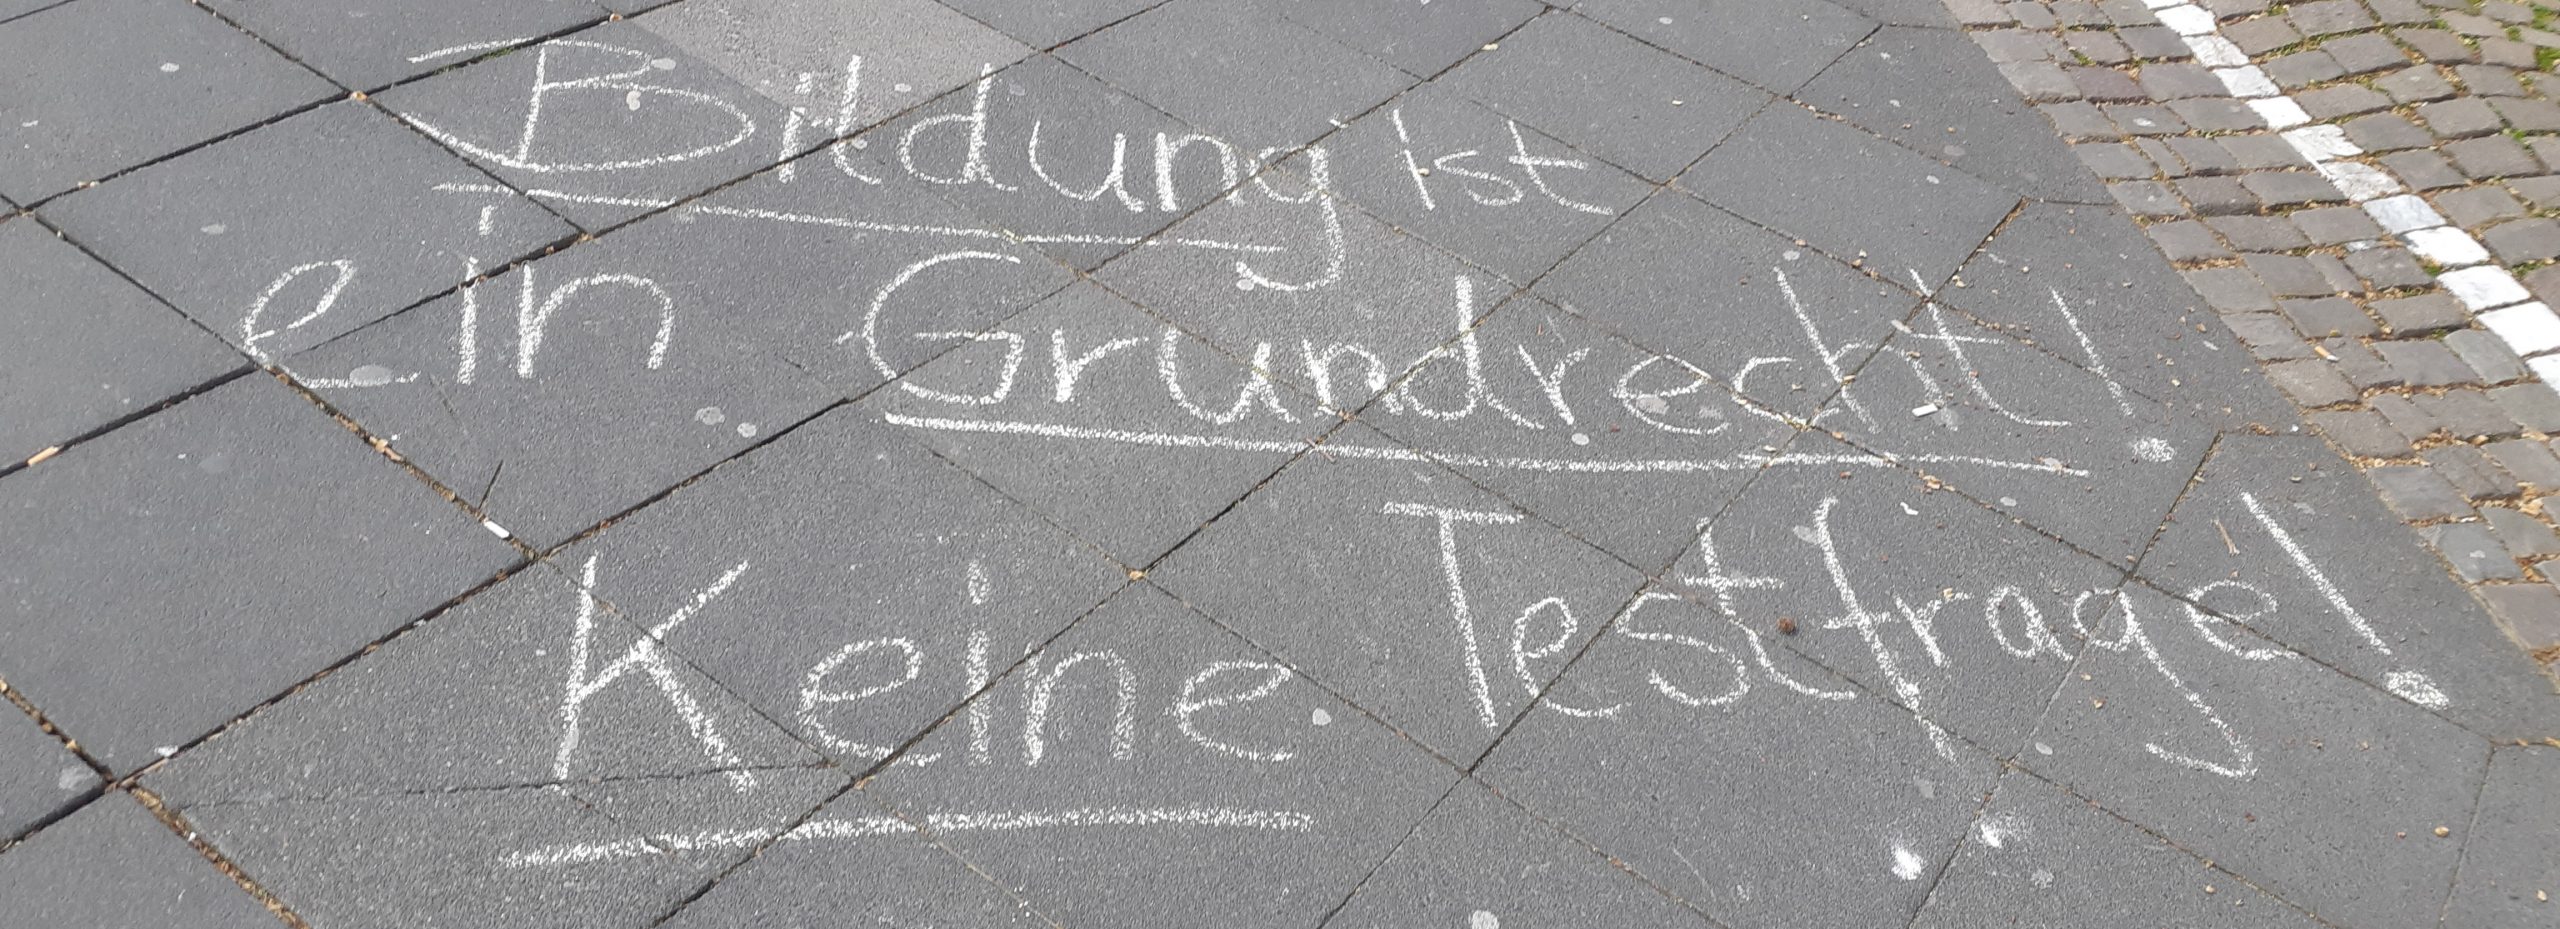 Bildung ist
ein Grundrecht!
Keine Testfrage!